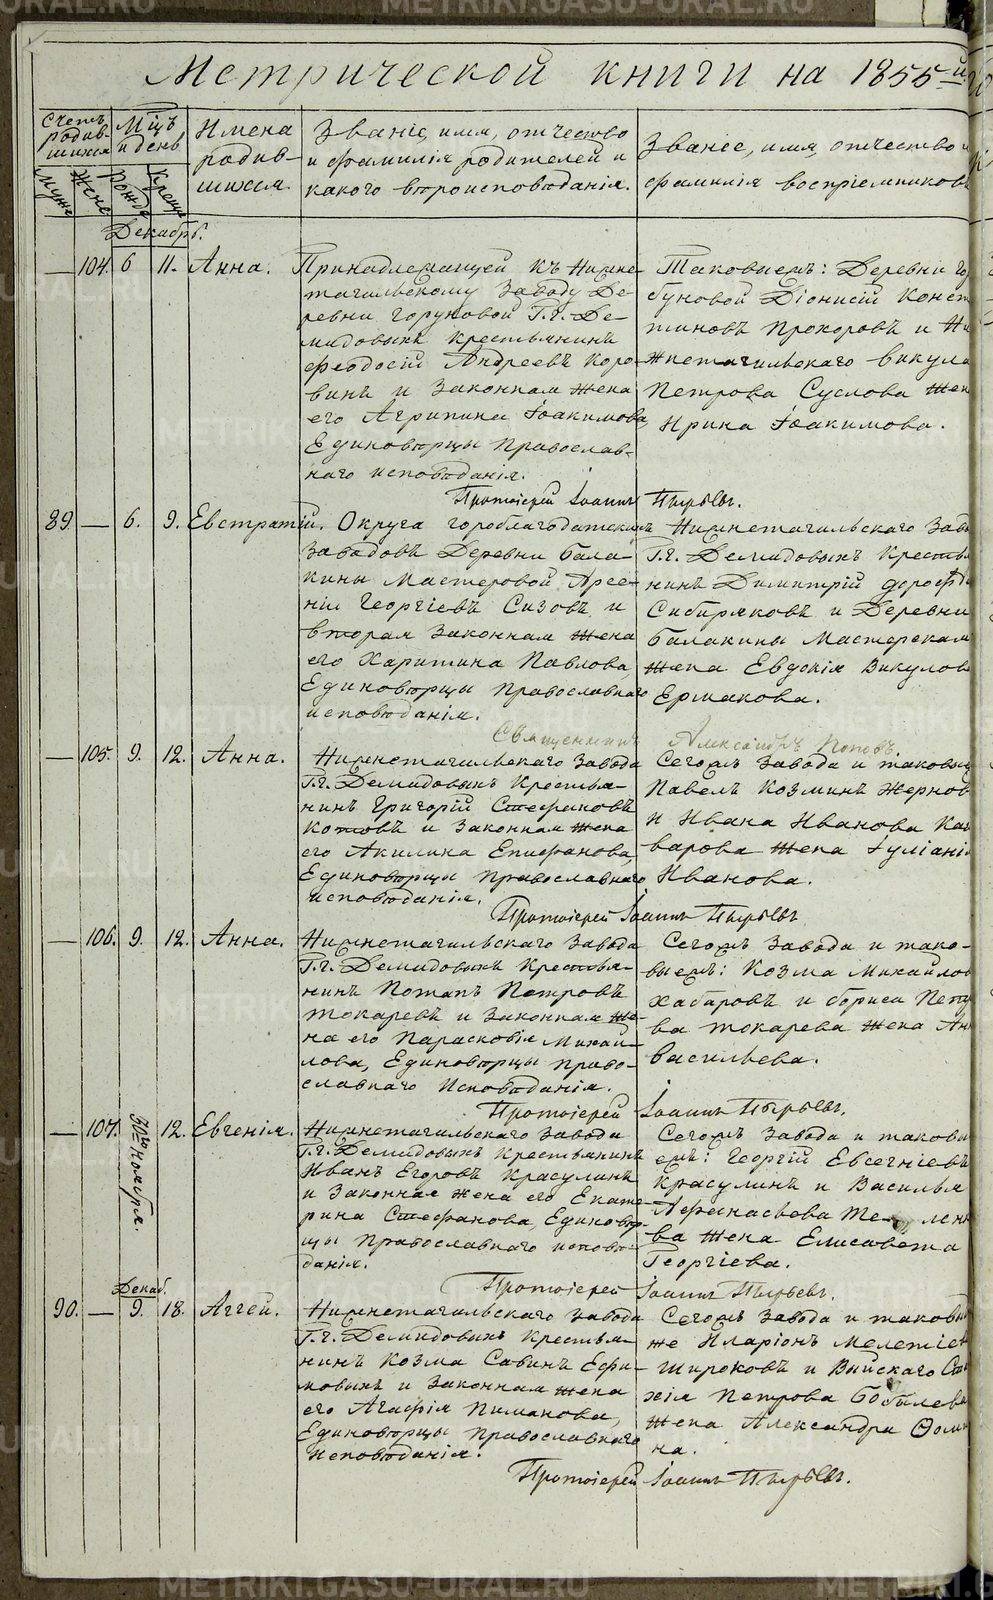 Метрической книги на 1855-й
Счетъ родив-шихся
Мужс Женс
М-цъ и день
Рожд Крещ
Имена родив-шихся
Званіе, имя, отчество
и фамилія родителей и
какого вѣроисповѣданія.
Званіе, имя, отчество и
фамилія воспріемниковъ
Декабрь.
— 104. 6 11. Анна.
Принадлежащей къ Нижне-
тагильскому заводу Де-
ревни Горуновой Г.г. Де-
мидовыхъ крестьянинъ
Феодосій Андреевъ Коро-
винъ и законная жена
его Агрипина Іоакимова,
Единовѣрцы Православ-
наго исповѣданія.
Таковыеже: Деревни Го
буновой Діонисій Конст
тиновъ Прохоровъ и Ни
жнетагильскаго Викула
Петрова Суслова жен
Ирина Іоакимова.
Протоіерей Іоаннъ Пырьевъ.
89. — 6. 9. Евстратій.
Округа Гороблагодатскихъ
заводовъ Деревни Бала-
кины Мастеровой Арсе-
ній Георгіевъ Сизовъ и
вторая законная жена
его Харитина Павлова,
Единовѣрцы православнаго
исповѣданія.
Нижнетагильскаго Заво
Г.г. Демидовыхъ Крестья
нинъ Димитрій Дорофѣ
Сибиряковъ и Деревни
Балакины Мастерская
жена Евдокія Викулов
Ермакова.
Священникъ Александръ Поповъ.
— 105. 9. 12. Анна.
Нижнетагильскаго Завода
Г.г. Демидовыхъ Крестья-
нинъ Григорій Стефановъ
Котовъ и законная жена
его Акилина Епифанова,
Единовѣрцы православнаго
исповѣданія.
Сегожъ завода и таковые
Павелъ Козминъ Жернов
и Ивана Иванова Ка
варова жена Іуліанія
Иванова.
Протоіерей Іоаннъ Пырьевъ
— 106. 9. 12. Анна.
Нижнетагильскаго завода
Г.г. Демидовыхъ Крестья-
нинъ Потапъ Петровъ
Токаревъ и законная же-
на его Парасковія Михай-
лова, Единовѣрцы право-
славнаго Исповѣданія.
Сегожъ завода и тако-
выеж: Козма Михайлов
Хабаровъ и Бориса Петр
ва Токарева жена Ан
Васильева.
Протоіерей Іоаннъ Пырьевъ.
— 107. 30го Ноября. 12. Евгенія.
Нижнетагильскаго завода
Г.г. Демидовыхъ Крестьянинъ
Иванъ Егоровъ Красулинъ
и законная жена его Екате-
рина Стефанова, Единовѣр-
цы Православнаго исповѣ-
данія.
Сегожъ завода и таковы
ежъ: Георгій Евсегніевъ
Красулинъ и Василья
Афанасьева
ва жена Елисавета
Георгіева.
Протоіерей Іоаннъ Пырьевъ.
Декаб.
90. — 9. 18. Аггей.
Нижнетагильскаго завода
Г.г. Демидовыхъ Крестья-
нинъ Козма Савинъ Ефи-
мовыхъ и законная жена
его Агафія Пиманова,
Единовѣрцы православнаго
исповѣданія.
Сегожъ завода и таковы
же Иларіонъ Мелетіе
Широковъ и Выйскаго
хія Петрова Бобылева
жена Александра Ѳоми
на.
Протоіерей Іоаннъ Пырьевъ.
METRIKI.GASU-URAL.RU